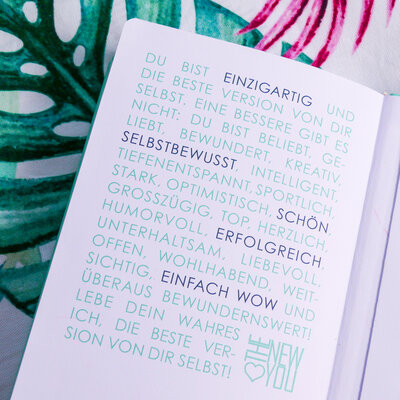 DU BIST EINZIGARTIG UND
DIE BESTE VERSION VON DIR
SELBST. EINE BESSERE GIBT ES
NICHT: DU BIST BELIEBT, GE-
LIEBT, BEWUNDERT, KREATIV,
SELBSTBEWUSST, INTELLIGENT,
TIEFENENTSPANNT, SPORTLICH,
STARK, OPTIMISTISCH, SCHÖN,
GROSSZÜGIG, TOP, HERZLICH,
HUMORVOLL, ERFOLGREICH,
UNTERHALTSAM, LIEBEVOLL,
OFFEN, WOHLHABEND, WEIT-
SICHTIG, EINFACH WOW UND
ÜBERAUS BEWUNDERNSWERT!
LEBE DEIN WAHRES
ICH, DIE BESTE VER-
SION VON DIR SELBST!
THE
NEW
YOU